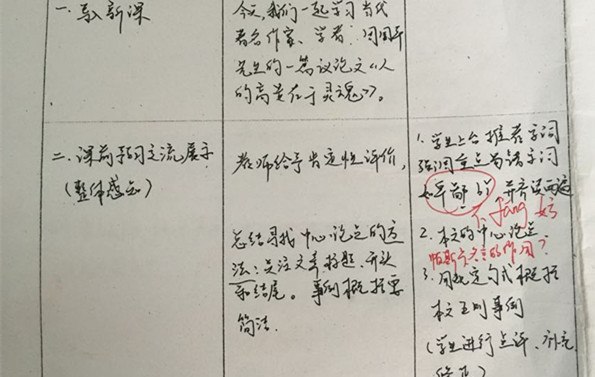 一.导入新课
今天,我们一起学习当代
著名作家、学者.周国平
先生的一篇议论文《人
的高贵在于灵魂》。
二.课前预习交流展示
(整体感知)
老师给予肯定性评价,
总结寻找中心论点的方
法:关注文章标题、开头
和结尾。事例概括要
简洁.
1.学生上台推荐字词
强调重点易错字词
并齐读两遍
不 fáng 妨
2.本文的中心论点
的作用?
3.用规定句式概括
本文正则事例
(学生进行点评、补充、
修正)